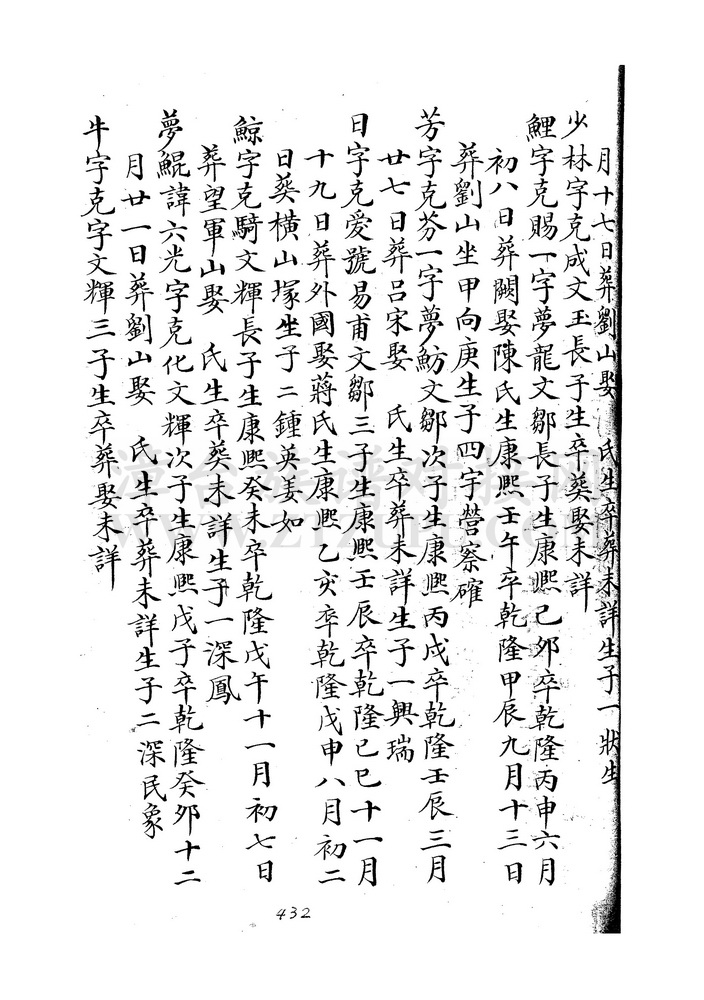 月十七日葬劉山娶　氏生卒葬未詳生子一狀生
少林字克成文玉長子生卒葬娶未詳
鯉字克賜一字夢龍文鄒長子生康熙己夘卒乾隆丙申六月
初八日葬闕娶陳氏生康熙壬午卒乾隆甲辰九月十三日
葬劉山坐甲向庚生子四宇營察確
芳字克芬一字夢魴文鄒次子生康熙丙戌卒乾隆壬辰三月
廿七日葬呂宋娶　氏生卒葬未詳生子一興瑞
日字克愛號易甫文鄒三子生康熙壬辰卒乾隆己巳十一月
十九日葬外國娶蔣氏生康熙乙亥卒乾隆戊申八月初二
日葬橫山塚生子二鍾英姜如
鯨字克騎文輝長子生康熙癸未卒乾隆戊午十一月初七日
葬望軍山娶　氏生卒葬未詳生子一深鳳
夢鯤諱六光字克化文輝次子生康熙戊子卒乾隆癸夘十二
月廿一日葬劉山娶　氏生卒葬未詳生子二深民象
牛字克字文輝三子生卒葬娶未詳
432
漳台族谱对接网
www.ztzupu.com